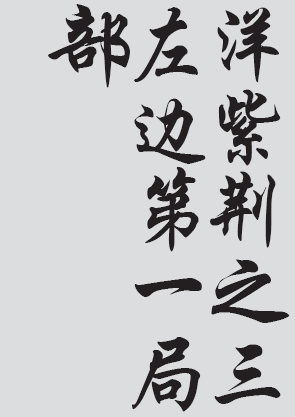 洋紫荆之三
左边第一局
部